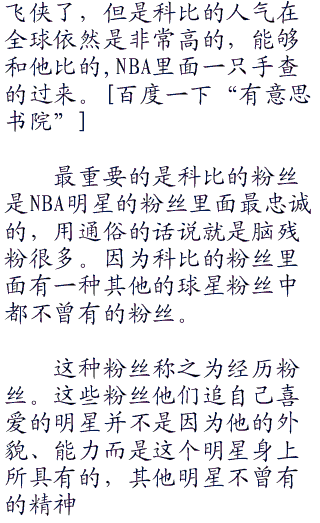 飞侠了，但是科比的人气在
全球依然是非常高的，能够
和他比的,NBA里面一只手查
的过来。[百度一下“有意思
书院”]
最重要的是科比的粉丝
是NBA明星的粉丝里面最忠诚
的，用通俗的话说就是脑残
粉很多。因为科比的粉丝里
面有一种其他的球星粉丝中
都不曾有的粉丝。
这种粉丝称之为经历粉
丝。这些粉丝他们追自己喜
爱的明星并不是因为他的外
貌、能力而是这个明星身上
所具有的，其他明星不曾有
的精神